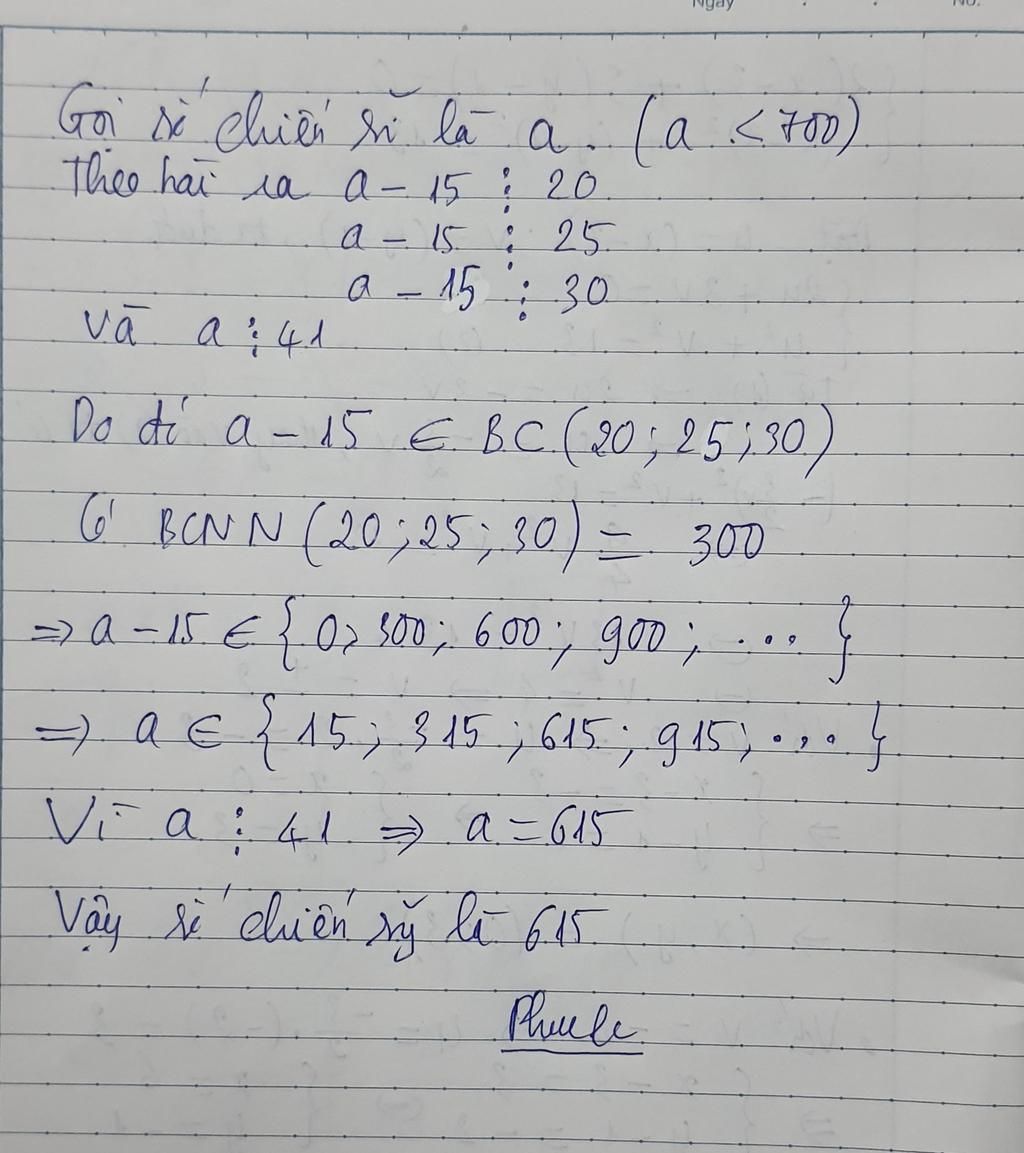 Ngày
No.
Gọi số chiến sĩ là a. (a < 700)
Theo bài ra a - 15 ⋮ 20
a - 15 ⋮ 25
a - 15 ⋮ 30
Và a ⋮ 41
Do đó a - 15 ∈ BC(20; 25; 30)
Có BCNN(20; 25; 30) = 300
=> a - 15 ∈ {0; 300; 600; 900; ...}
=> a ∈ {15; 315; 615; 915; ...}
Vì a ⋮ 41 => a = 615
Vậy số chiến sỹ là 615